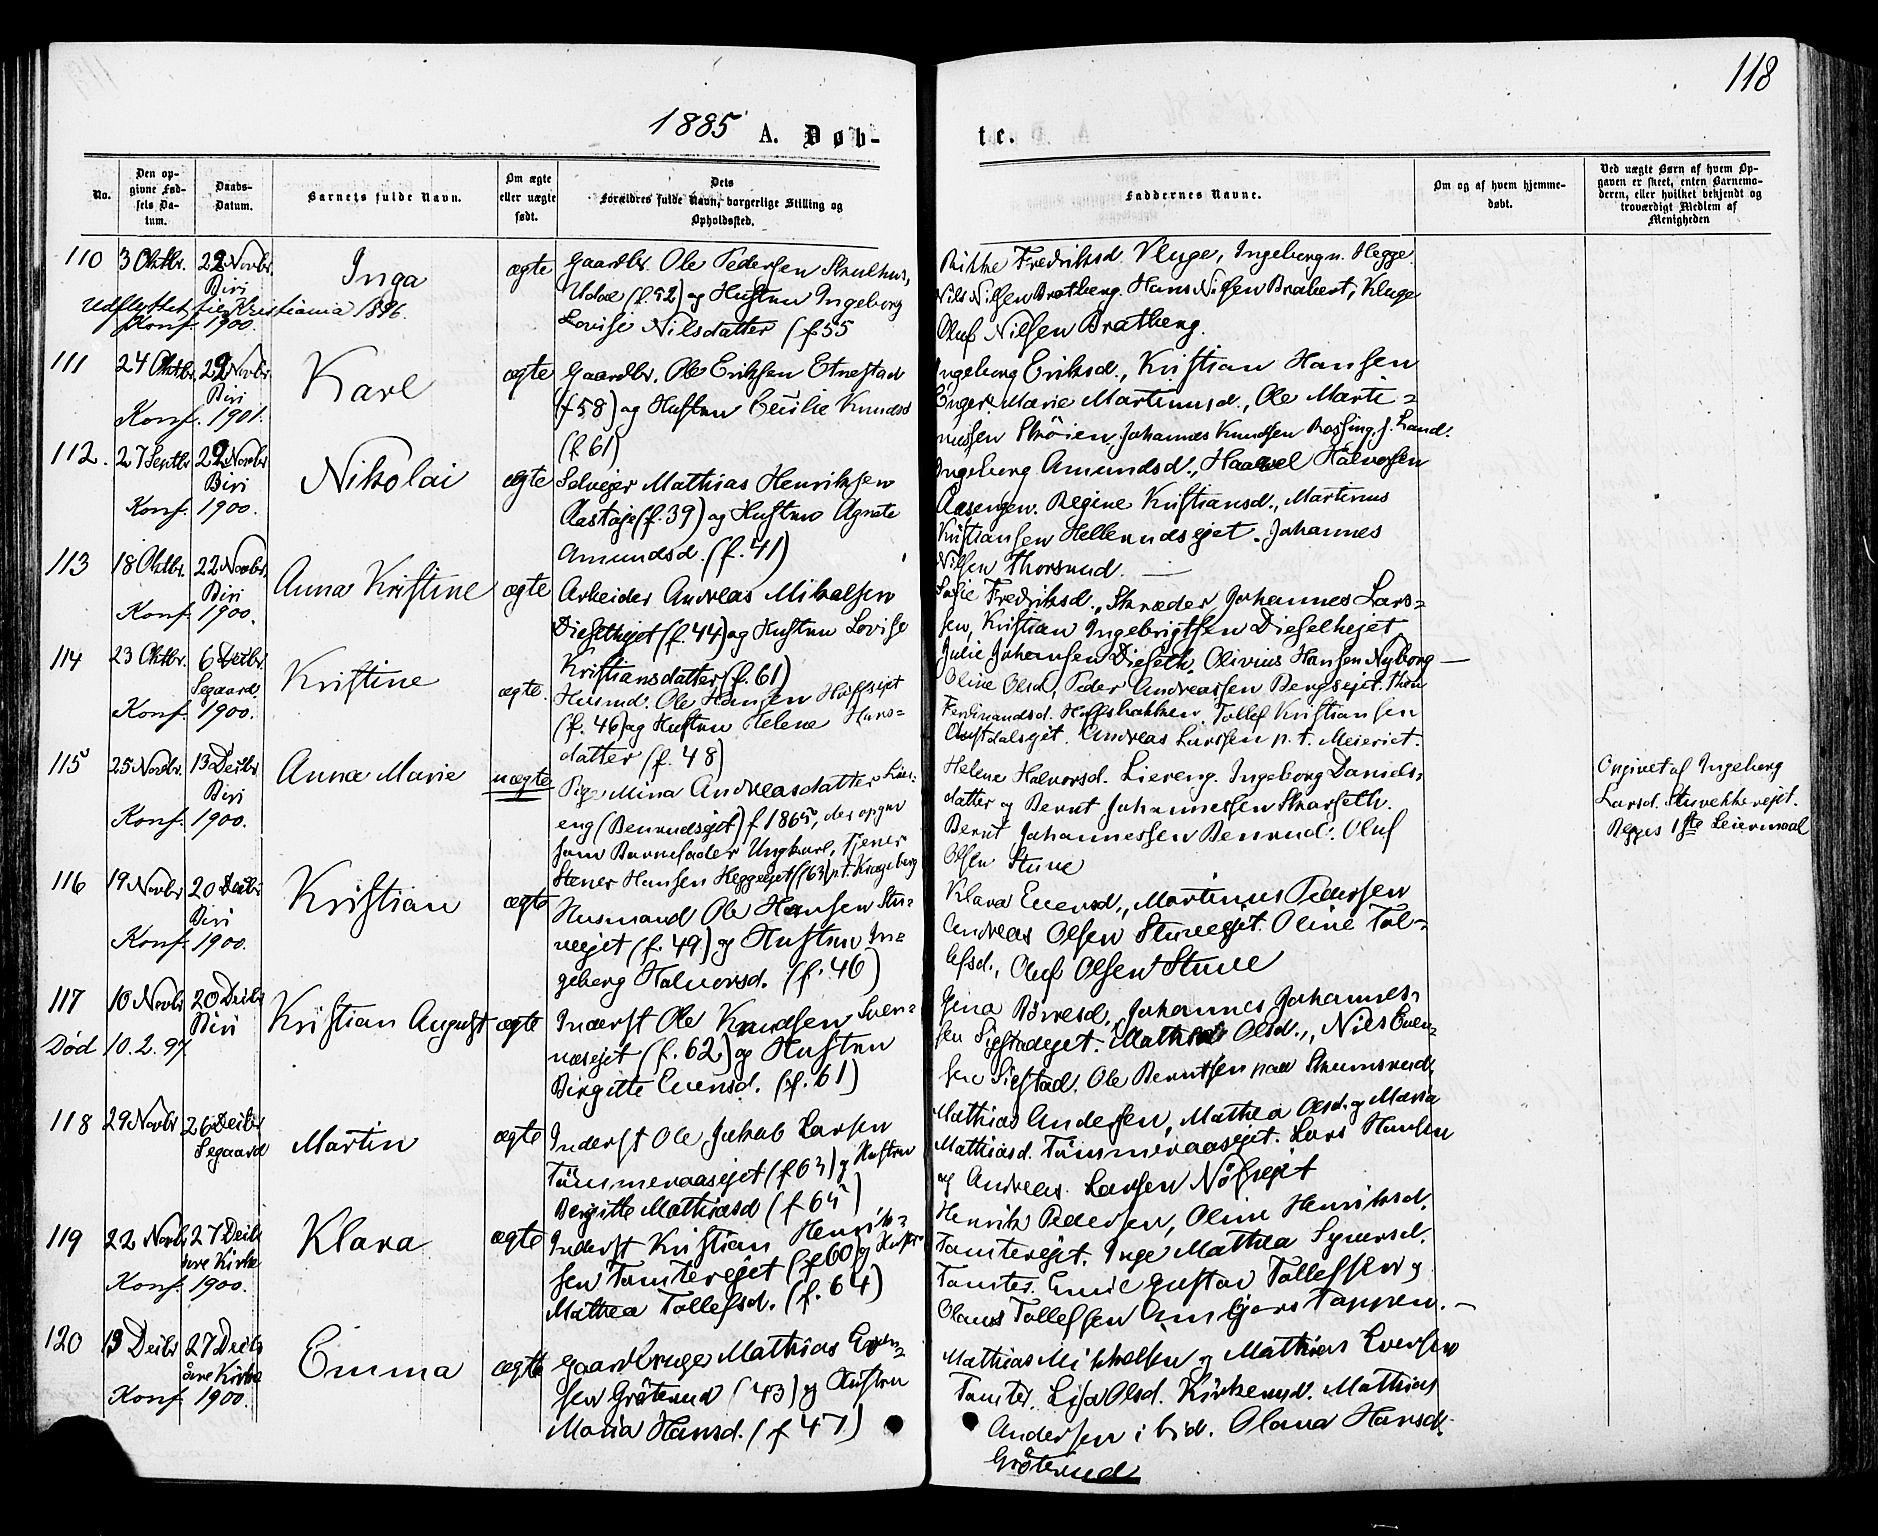 118
1885 A. Døb-
te.
No.
Den op-
givne Fød-
sels Da-
tum.
Daabs-
Datum.
Barnets fulde Navn.
Om ægte
eller uægte
født.
Dets
Forældres fulde Navn, borgerlige Stilling og
Opholdssted.
Faddernes Navne.
Om og af hvem hjemme-
døbt.
Ved uægte Børn af hvem Op-
gaven er skeet, enten Barnemo-
deren, eller hvilket bekjendt og
troværdigt Medlem af
Menigheden
110 3 Oktbr. 22 Novbr. Biri
Inga
ægte
Gaardbr. Ole Pedersen Skulhus,
(f. 52) og Hustru Ingeborg
Lovise Nilsdatter (f. 55
Udflyttet til Kristiania 1896.
Konf. 1900.
Fredriksd. Kluge, Ingeborg n. Hegge.
Nils Nilsen Bratberg. Hans Nilsen Kluge
Oluf Nilsen Bratberg.
111 24 Oktbr. 22 Novbr. Biri
Karl
ægte
Gaardbr. Ole Eriksen Etnestad
(f. 58) og Hustru Cecilie Knudsd
(f. 61)
Konf. 1901.
Ingeborg Eriksd., Kristian Hansen
Enger. Marie Martinusd., Ole Marti-
nussen Skrøien. Johannes Knudsen Land.
112. 27 Septbr. 22 Novbr. Biri
Nikolai
ægte
Selveier Mathias Henriksen
Aastaje (f. 39) og Hustru Agnete
Amundsd. (f. 41)
Konf. 1900.
Ingeborg Amundsd., Haavel Halvorsen
Aasengen. Regine Kristiansd., Martinus
Kristiansen Hellerudsejet. Johannes
Nilsen Thorsrud.
113 18 Oktbr. 22 Novbr. Biri
Anna Kristine
ægte
Arbeider Andreas Mikalsen
(f. 44) og Hustru Lovise
Kristiansdatter (f. 61)
Konf. 1900.
Sofie Fredriksd., Skræder Johannes Lars-
sen, Kristian Ingebrigtsen
Julie Johansen Dieseth. Olivius Hansen Nyborg —
114 23 Oktbr. 6 Decbr. Segaard.
Kristine
ægte.
Husmd. Ole Hansen Hoffsejet
(f. 46) og Hustru Helene Hans-
datter (f. 48)
Konf. 1900.
Oline Olsd, Peder Andreassen Bergsejet.
Ferdinandsd. Hoffsbakken, Tollef Kristiansen
Andreas Larssen p. t. Meieriet.
115 25 Novbr. 13 Decbr. Biri
Anna Marie
uægte
Pige Mina Andreasdatter Lier-
eng (Benrudsejet) f 1865, der opgav
som Barnefader Ungkarl, Tjener
Stener Hansen Heggeejet (f. 63) p. t.
Konf. 1900.
Helene Halvorsd. Liereng. Ingeborg Daniels-
datter og Bernt Johannessen Skarseth.
Bernt Johannessen Benrud. Oluf
Olsen Stuve
Opgivet af Ingeborg
Larsd. Stuvekkerejet.
Begges 1ste Leiermaal
116 19 Novbr. 20 Decbr. Biri
Kristian
ægte
Husmand Ole Hansen Stu-
veejet (f. 49.) og Hustru In-
geborg Halvorsd. (f. 46)
Konf. 1900.
Klara Evensd., Martinus Pedersen
Andreas Olsen Stuveejet. Oline Tol-
lefsd., Oluf Olsen Stuve
117 10 Novbr. 20 Decbr. Biri
Kristian August
ægte
Inderst Ole Knudsen Sven-
næsejet (f. 62.) og Hustru
Birgitte Evensd. (f. 61)
Død 10. 2. 97
Gina Børresd., Johannes Johannes-
sen Sigstadejet. Mathea Olsd., Nils Even-
sen Sigstad. Ole Berntsen paa Skumsrud.
118 29 Novbr 26 Decbr Segaard
Martin
ægte
Inderst Ole Jakob Larsen
Tømmeraasejet (f. 63) og Hustru
Birgitte Mathiasd (f 65)
Mathias Andersen, Mathea Olsd. og Maria
Mathiasd. Tømmeraasejet. Lars Hansen
og Andreas Larsen
119 22 Novbr 27 Decbr øvre Kirke
Klara
ægte
Inderst Kristian Henrik-
sen Tomterejet (f. 60) og Hustru
Mathea Tollefsd. (f. 64)
Konf. 1900.
Henrik Pedersen, Oline Henriksd.
Tomterejet. Inge Mathea Syversd.
Tomter. Emil Gustav Tollefsen og
Olaus Tollefsen Tappen. —
120 13 Decbr 27 Decbr øvre Kirke
Emma
ægte
Gaardbruger Mathias Even-
sen Grøterud (43) og Hustru
Maria Hansd. (f 47)
Konf 1900.
Mathias Mikkelsen og Mathias Evensen
Tomter, Lisa Olsd. Kirkerud. Mathias
Andersen ibid. Olava Hansd.
Grøterud